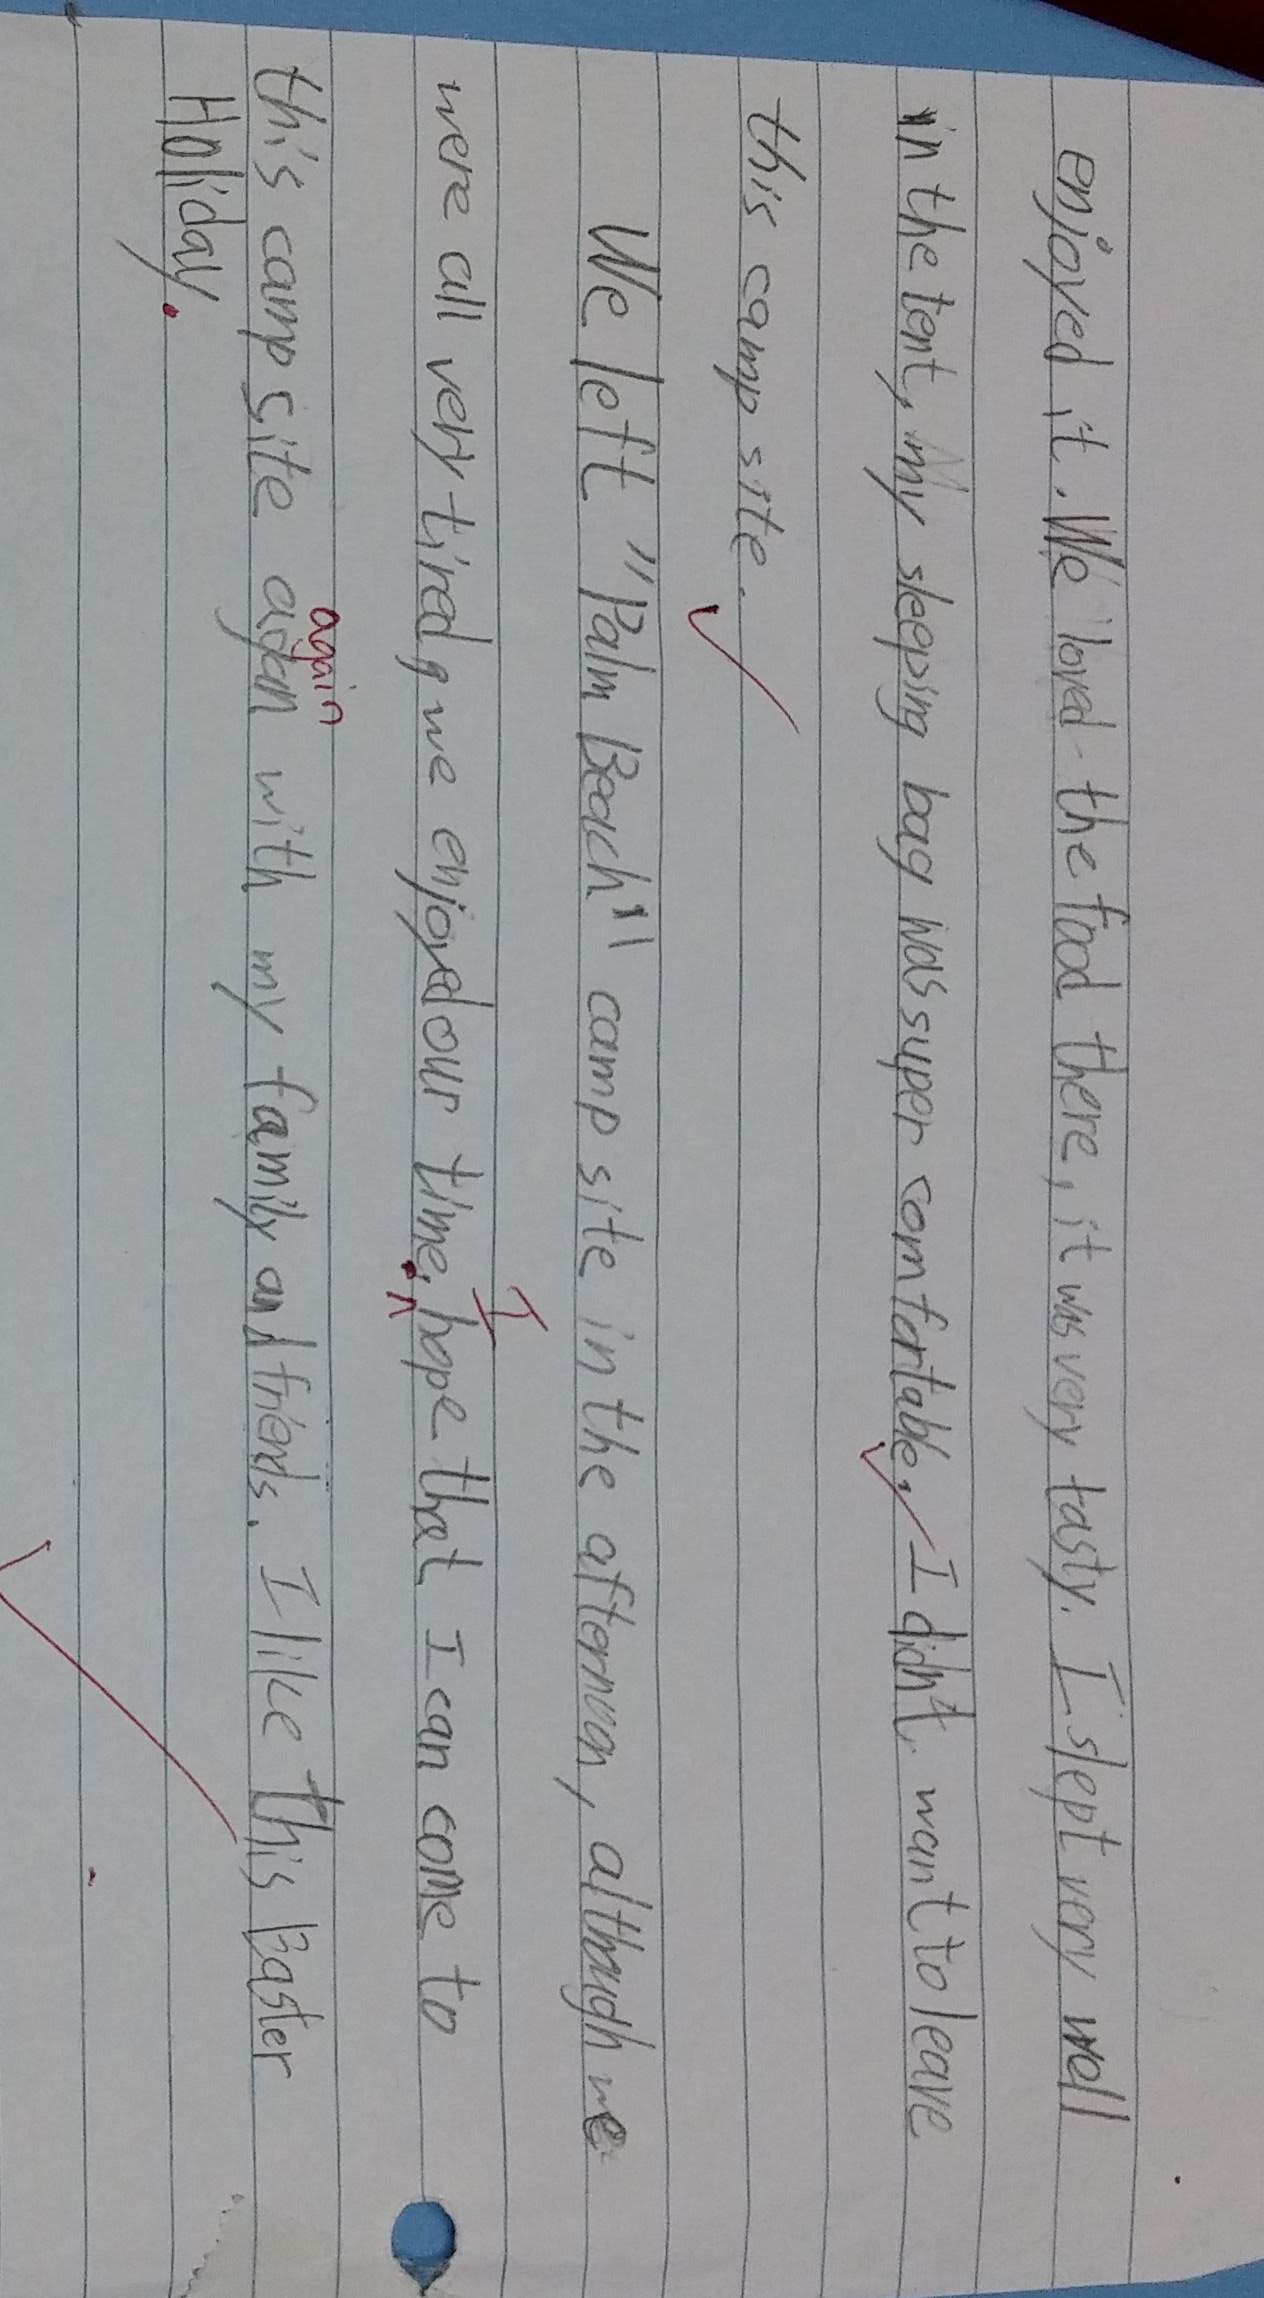 enjoyed it. We loved the food there, it was very tasty. I slept very well
in the tent, my sleeping bag was super comfortable, I didn't want to leave
this camp site.
We left "Palm Beach" camp site in the afternoon, although we
I
were all very tired, we enjoyed our time. hope that I can come to
again
this camp site agan with my family and friends. I like this Easter
Holiday.